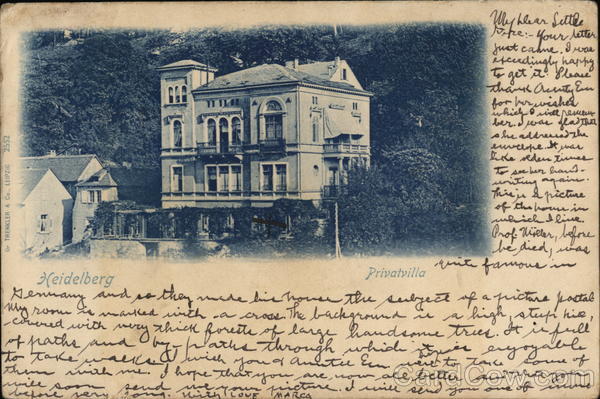 My dear Little
Your letter
just came. I was
exceedingly happy
to get it. Please
thank Aunty Em
for her wishes
which I will remem
ber. I was glad that
she addressed the
envelope. It was
like olden times
to see her hand-
writing again.
This is a picture
of the home in
which I live
Prof. before
he died, was
quite famous in
Heidelberg
Privatvilla
Dr TRENKLER & Co., LEIPZIG 2552
Germany and so they made his house the subject of a picture postal
My room is marked with a cross. The background is a high, steep hill,
covered with very thick forests of large handsome trees. It is full
of paths and by-paths through which it is enjoyable
to take walks. I wish you & Auntie Em might take some of
them with me. I hope that you are now all better and that you
will soon send me your picture. I will send you one of mine
before very long. With LOVE
CardCow.com